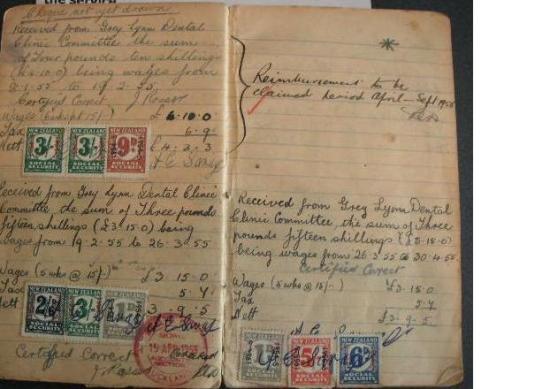 the service
Cheque not yet drawn
Received from Grey Lynn Dental
Clinic Committee the sum
of Four pounds ten shillings
(£4.10.0) being wages from
to 19.2.55.
Certified Correct
Wages
Tax 6.9
Nett £4.2.3
NEW ZEALAND 3/- SOCIAL SECURITY
NEW ZEALAND 3/- SOCIAL SECURITY
NEW ZEALAND 9D SOCIAL SECURITY
Received from Grey Lynn Dental Clinic
Committee the sum of Three pounds
fifteen shillings (£3.15.0) being
wages from 19.2.55 to 26.3.55
Wages (5 wks @ 15/-) £3.15.0
Tax 5.7
Nett 3.9.5
NEW ZEALAND 2/6 SOCIAL SECURITY
NEW ZEALAND 3/- SOCIAL SECURITY
Certified Correct
Reimbursement to be
claimed period April - Sept
Received from Grey Lynn Dental
Clinic Committee, the sum of Three
pounds fifteen shillings (£3.15.0)
being wages from 26.3.55 to 30.4.55
Certified Correct
Wages (5 wks @ 15/-) £3.15.0
Tax 5.7
Nett £3.9.5